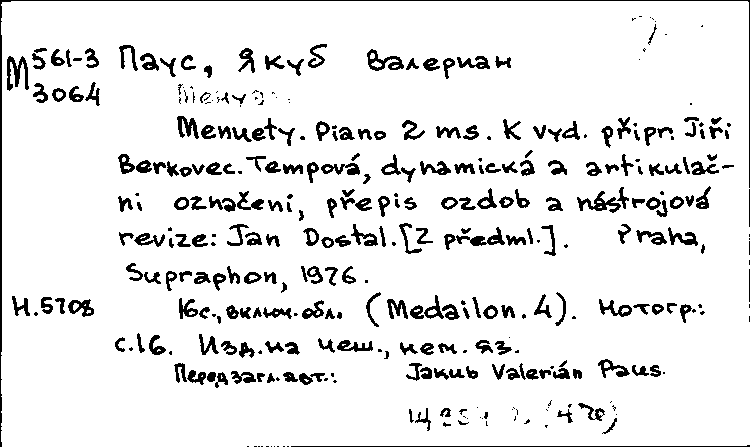 М 561-3 Паус, Якуб Валериан
3064
Menuety. Piano 2 ms. K vyd. připr. Jiři
Berkovec. Tempová, dynamická a artikulač-
ni označeni, přepis ozdob a nástrojová
revize: Jan Dostal. [2 předml.]. Praha,
Supraphon, 1976.
Н.5708 16с., включ. обл. (Medailon. 4). Нотогр.:
с.16. Изд. на чеш., нем. яз.
Перед загл. авт.: Jakub Valerián Paus.
(470)